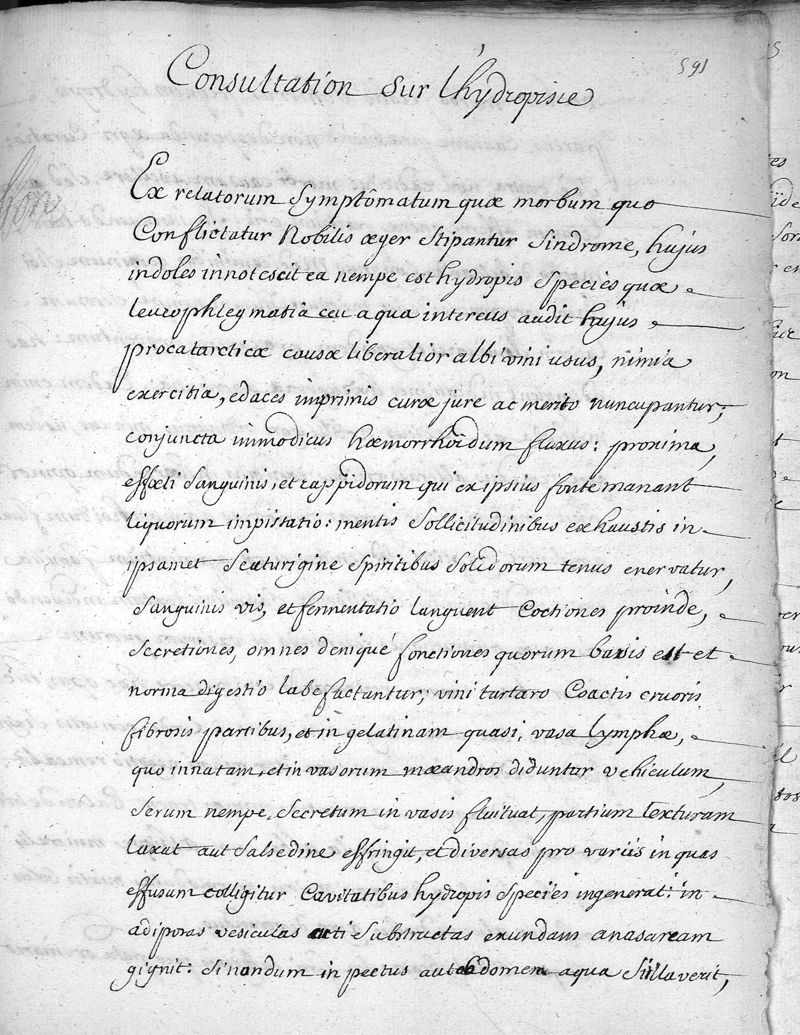 591
Consultation sur l'hydropisie
Ex relatorum symptômatum quæ morbum quo
Conflictatur Nobilis æger stipantur sindrome, hujus
indoles innotescit ea nempe est hydropis species quæ
leucophlegmatia ceu aqua intercus audit hujus
procatarcticæ causæ liberalior albi vini usus, nimia
exercitia, edaces imprimis curæ jure ac merito nuncupantur;
conjuncta immodicus hæmorrhoïdum fluxus: proxima,
effœti sanguinis, et rappidorum qui ex ipsius fonte manant
liquorum impistatio: mentis sollicitudinibus exhaustis in
ipsamet scaturigine spiritibus solidorum tenus enervatur,
sanguinis vis, et fermentatio languent Coctiones proinde,
secretiones, omnes deniqué fonctiones quorum basis est et
norma digestio labefactantur; vini tartaro Coactis cruoris
fibrosis partibus, et in gelatinam quasi, vasa lymphæ,
quo innatam, et in vasorum mæandros diduntur vehiculum,
serum nempe, secretum in vasis fluituat, partium texturam
laxat aut salsedine effringit, et diversas pro variis in quas
effusum colligitur Cavitatibus hydropis species ingenerat: in
adiposas vesiculas cuti substructas exundans anasarcam
gignit: si nondum in pectus aut abdomen aqua stillaverit,